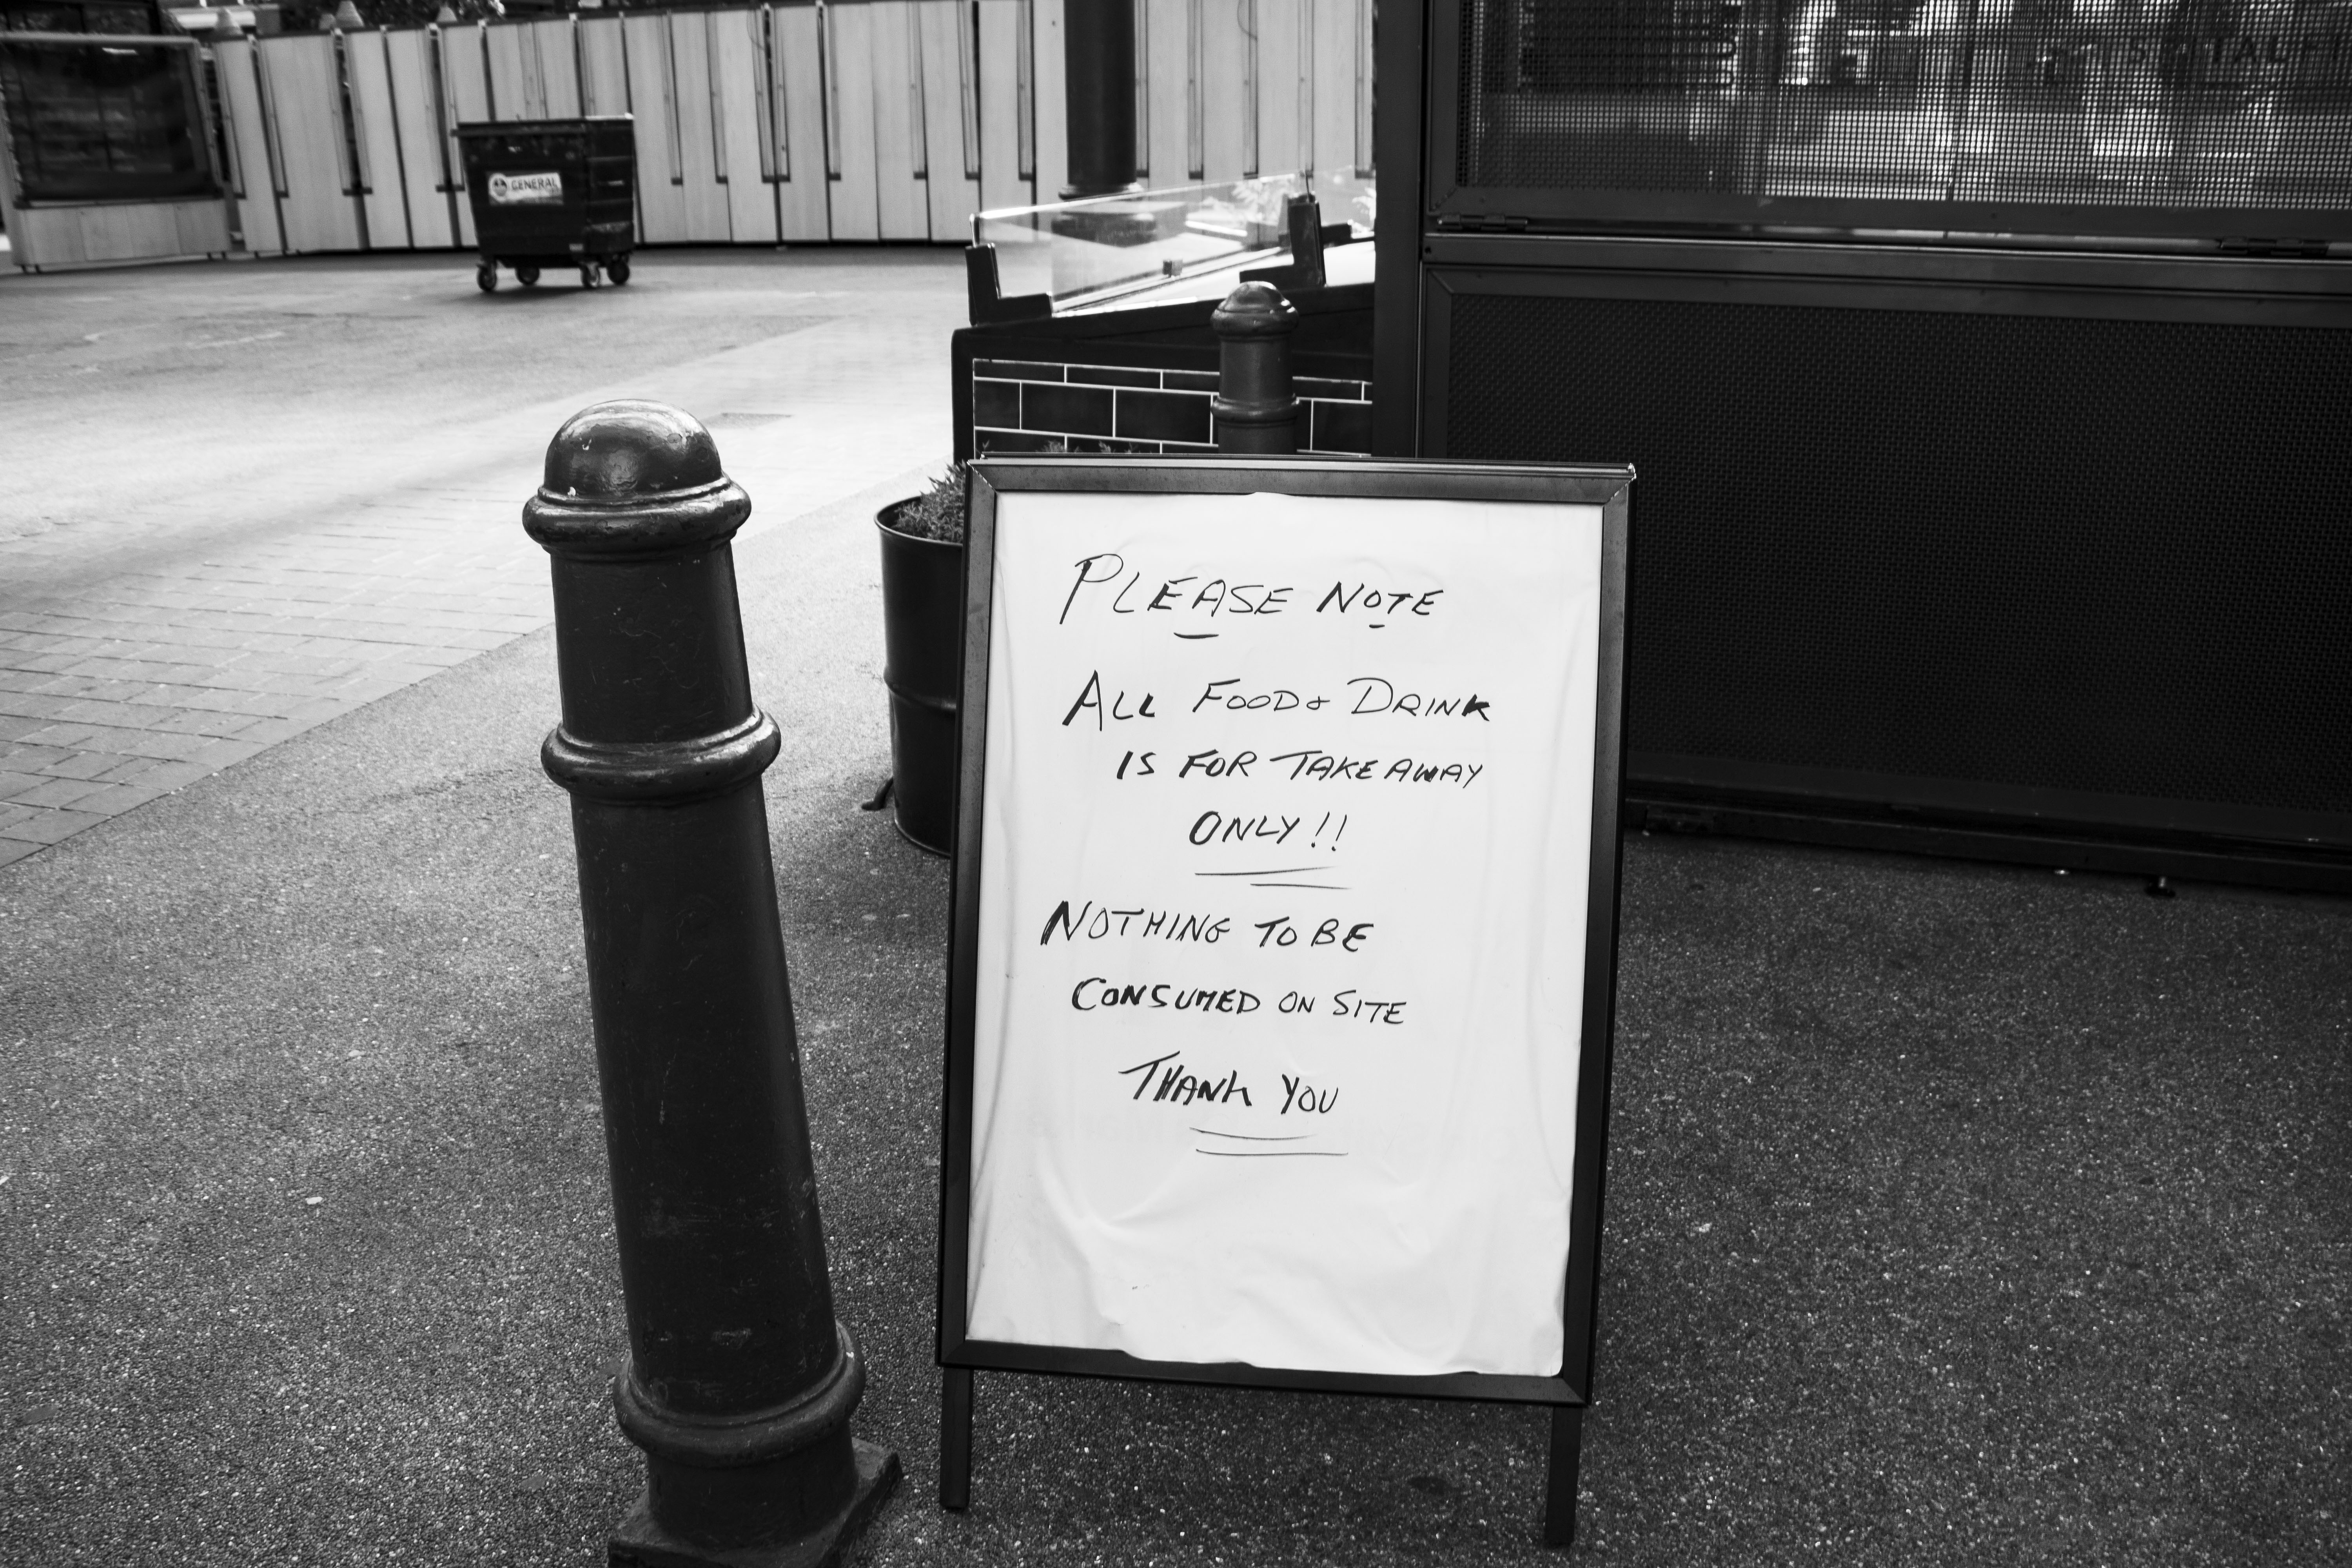 GENERAL
PLEASE NOTE
ALL FOOD & DRINK
IS FOR TAKE AWAY
ONLY!!
NOTHING TO BE
CONSUMED ON SITE
THANK YOU